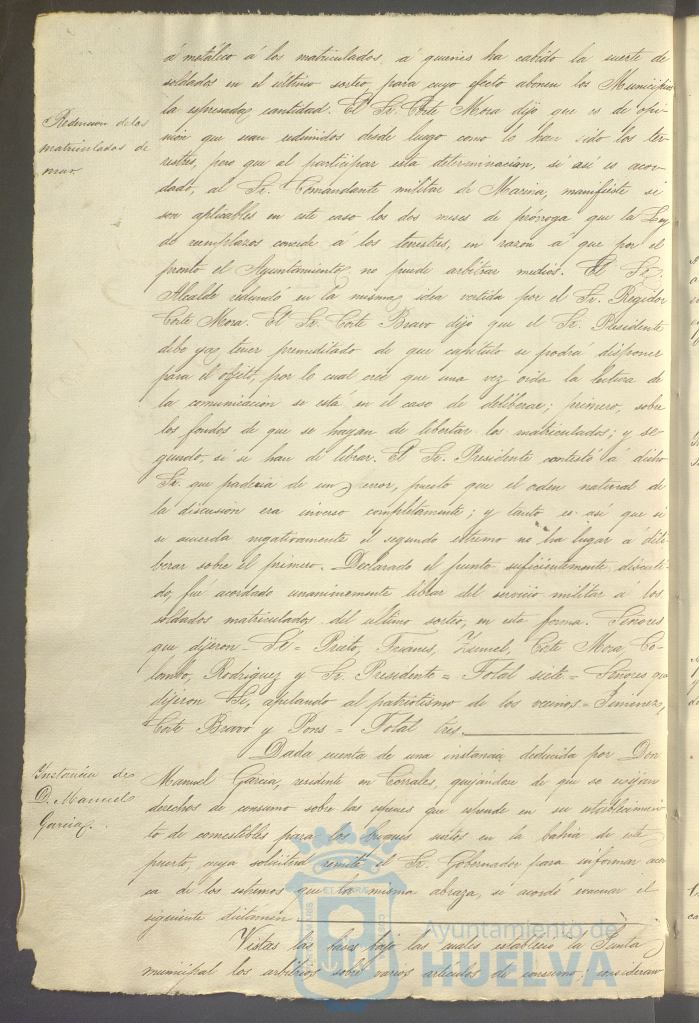 á metálico á los matriculados á quienes ha cabido la suerte de
soldados en el último sorteo para cuyo efecto abonen los Municipios
la espresada cantidad. El Sr. Corte Mora dijo que es de opi-
Redencion de los
matriculados de
mar
nion que sean redimidos desde luego como lo han sido los ter-
restres, pero que al participar esta determinacion, si así es acor-
dado, al Sr. Comandante militar de Marina, manifieste si
son aplicables en este caso los dos meses de prórroga que la Ley
de reemplazos concede á los terrestres, en razon á que por el
pronto el Ayuntamiento no puede arbitrar medios. El Sr.
Alcalde redundó en la misma idea vertida por el Sr. Regidor
Corte Mora. El Sr. Corte Bravo dijo que el Sr. Presidente
debe ya tener premeditado de que capítulo se podrá disponer
para el objeto, por lo cual cree que una vez oida la lectura de
la comunicacion se está en el caso de deliberar; primero, sobre
los fondos de que se hayan de libertar los matriculados; y se-
gundo, si se han de librar. El Sr. Presidente contestó á dicho
Sr. que padecia de un error, puesto que el orden natural de
la discusion era inverso completamente; y tanto es así que si
se acuerda negativamente el segundo estremo no ha lugar á deli-
berar sobre el primero. Declarado el punto suficientemente discuti-
do, fué acordado unanimemente librar del servicio militar á los
soldados matriculados del ultimo sorteo, en esta forma. Señores
que dijeron - Sí = Prieto, Trianes, Corte Mora, Co-
lombo, Rodriguez y Sr. Presidente = Total siete = Señores que
dijeron Si, apelando al patriotismo de los vecinos = Jimenez,
Corte Bravo y Pons = Total tres.
Instancia de
D. Manuel
Garcia.
Dada cuenta de una instancia deducida por Don
Manuel Garcia, residente en Corrales, quejándose de que se exijan
derechos de consumo sobre las especies que espende en su establecimien-
to de comestibles para los buques surtos en la bahia de este
puerto, cuya solicitud remite el Sr. Gobernador para informar acer-
ca de los estremos que la misma abraza, se acordó evacuar el
siguiente dictamen
Vistas las bases bajo las cuales estableció la Junta
municipal los arbitrios sobre varios artículos de consumo; consideran-
Ayuntamiento de
HUELVA